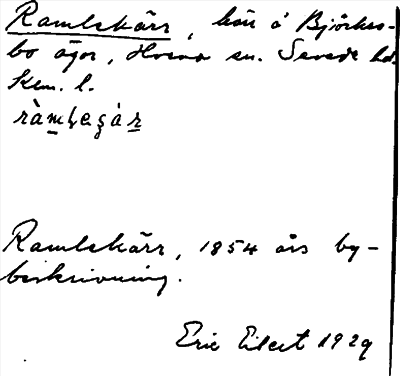 Ramlskärr, kärr å Björkes-
bo ägor, Hvena sn. Sevede hd.
Kem. l.
ràmḷesa̧àr
Ramlskärr, 1854 års by-
beskrivning.
Eric Elert 1929